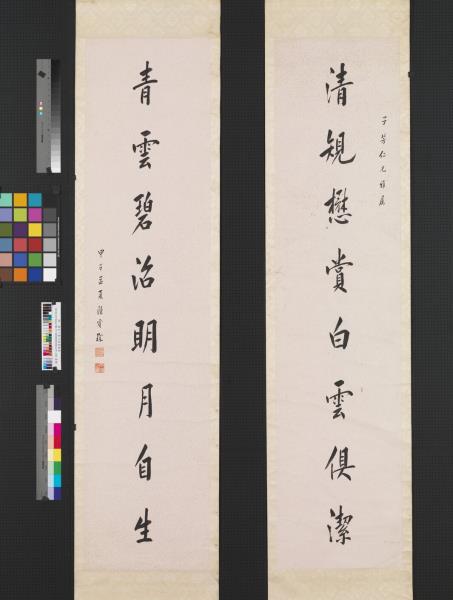 子芳仁兄雅屬
清規懋賞白雲俱潔
青雲碧沼明月自生
甲子孟夏陳寶琛